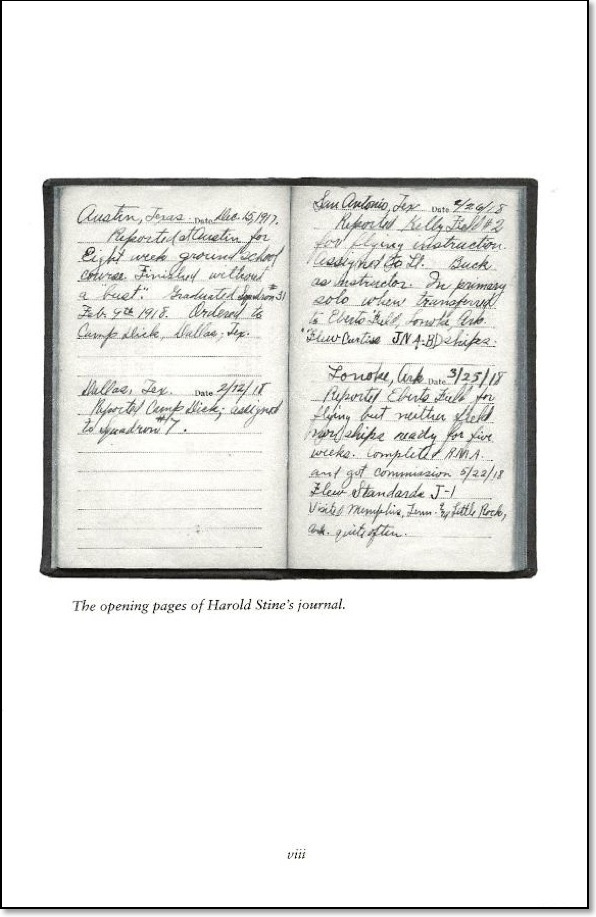 Austin, Texas. Date Dec. 15, 1917.
Reported at Austin for
Eight week ground school
course. Finished without
a "bust". Graduated Squadron #31
Feb. 9th 1918. Ordered to
Camp Dick, Dallas, Tex.
Dallas, Tex. Date 2/12/18
Reported Camp Dick; assigned
to squadron #7.
San Antonio, Tex Date 2/26/18
Reported Kelly Field #2
for flying instruction.
Assigned to Lt. Buck
as instructor. In primary
solo when transferred
to Eberts Field Lonoke Ark.
Flew Curtiss JN4-B ships.
Lonoke, Ark Date 3/25/18
Reported Eberts Field for
flying but neither field
nor ships ready for five
weeks. Completed R.M.A.
and got commission 5/22/18
Flew Standards J-1
Visited Memphis, Tenn. & Little Rock,
Ark. quite often.
The opening pages of Harold Stine's journal.
viii